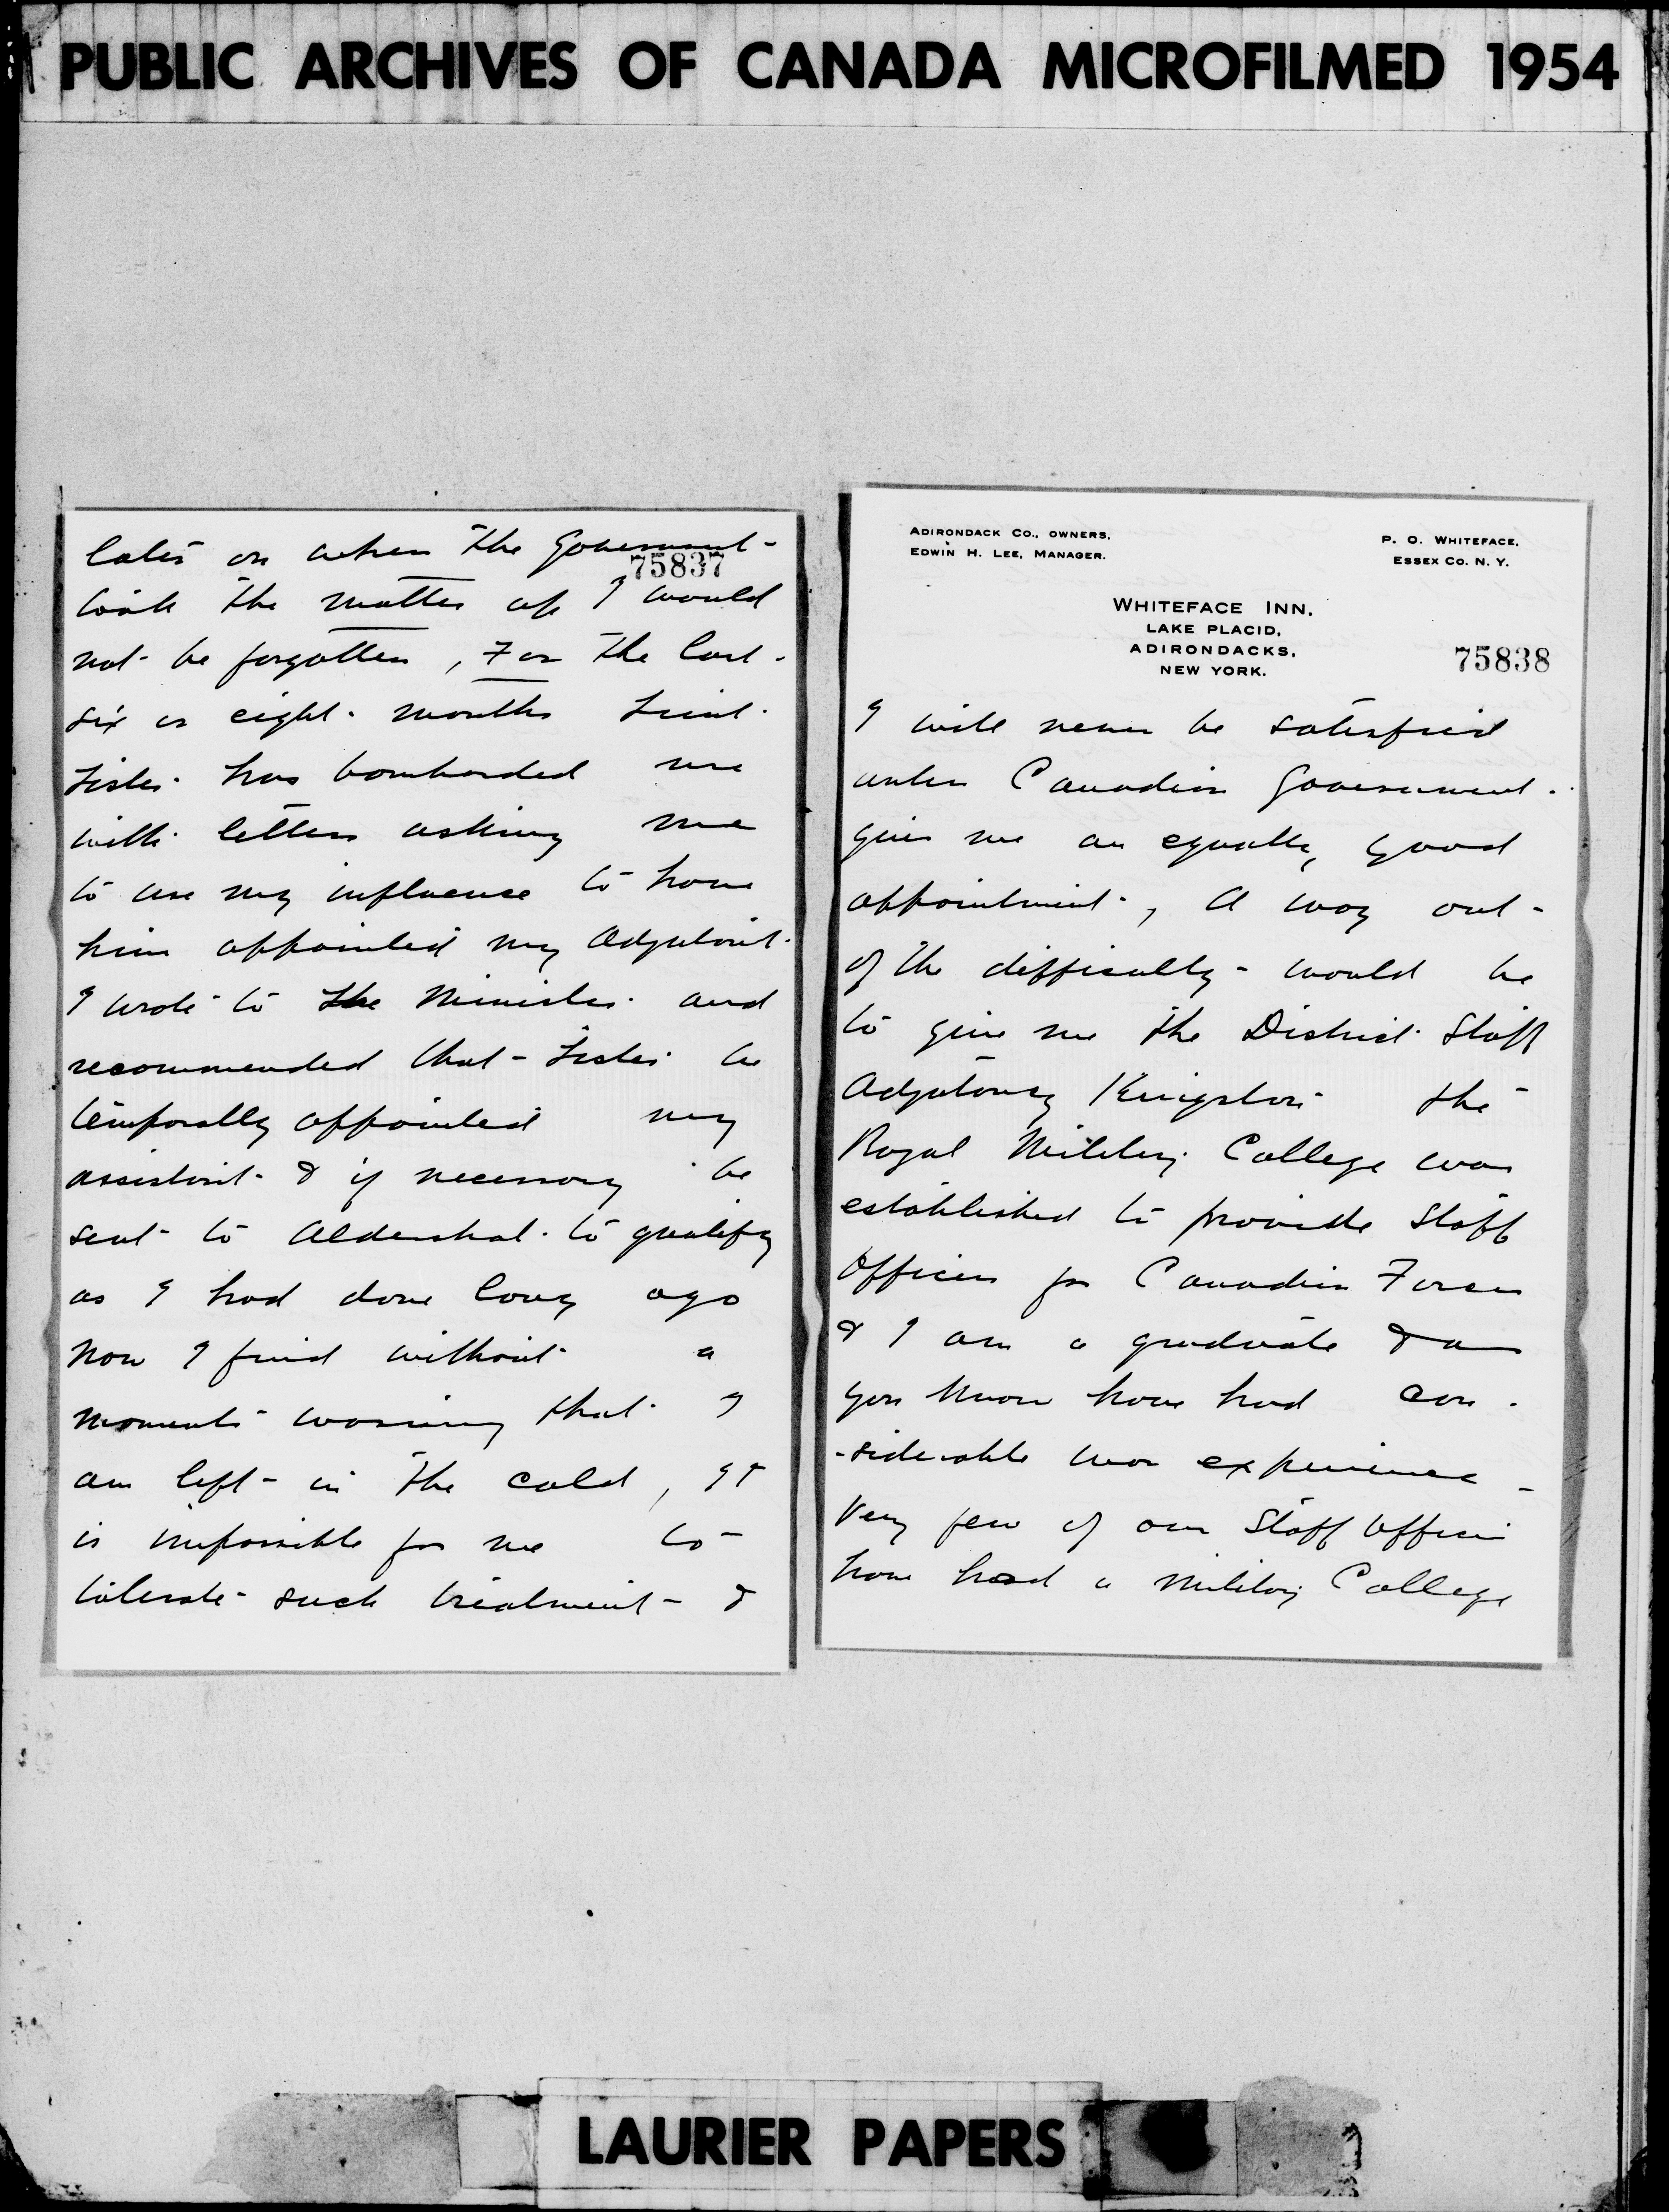 PUBLIC ARCHIVES OF CANADA MICROFILMED 1954
later on when the Government
75837
took the matter up I would
not be forgotten, For the last
six or eight months Lieut.
Lister has bombarded me
with letters asking me
to use my influence to have
him appointed my Adjutant.
I wrote to the Minister and
recommended that Lister be
temporally appointed my
assistant & if necessary be
sent to Aldershot to qualify
as I had done long ago
Now I find without a
moments warning that I
am left in the cold, It
is impossible for me to
tolerate such treatment &
ADIRONDACK CO., OWNERS.
EDWIN H. LEE, MANAGER.
P. O. WHITEFACE,
ESSEX CO. N. Y.
WHITEFACE INN.
LAKE PLACID,
ADIRONDACKS,
NEW YORK.
75838
I will never be satisfied
unless Canadian Government
gives me an equally good
appointment, A way out
of the difficulty would be
to give me the District Staff
Adjutancy Kingston the
Royal Military College was
established to provide Staff
Officers for Canadian Forces
& I am a graduate & as
you know have had con-
-siderable war experience
Very few of our Staff Officers
have had a Military College
LAURIER PAPERS